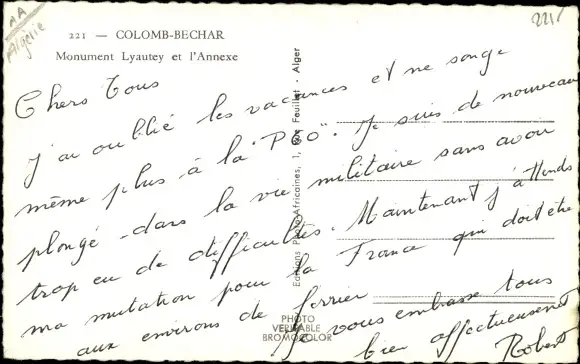 AA
Algérie
221
221 — COLOMB-BECHAR
Monument Lyautey et l'Annexe
Editions Photo-Africaines, 1, Rue Feuillet - Alger
Chers Tous
J'ai oublié les vacances et ne songe
même plus à la "P O". Je suis de nouveau
plongé dans la vie militaire sans avoir
trop eu de difficultés. Maintenant j'attends
ma mutation pour la France qui doit être
aux environs de février
Je vous embrasse tous
bien affectueusement
Robert
PHOTO
VERITABLE
BROMOCOLOR